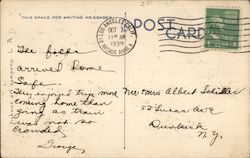 THIS SPACE FOR WRITING MESSAGES
POST CARD
LOS ANGELES, CALIF.
OCT
11 AM
1939
The folks
arrived home
safe.
They enjoyed trip more
coming home than
going as train
was not so
crowded
George
Mr & Mrs Albert
52 Lucas Ave
Dunkirk
N.Y.